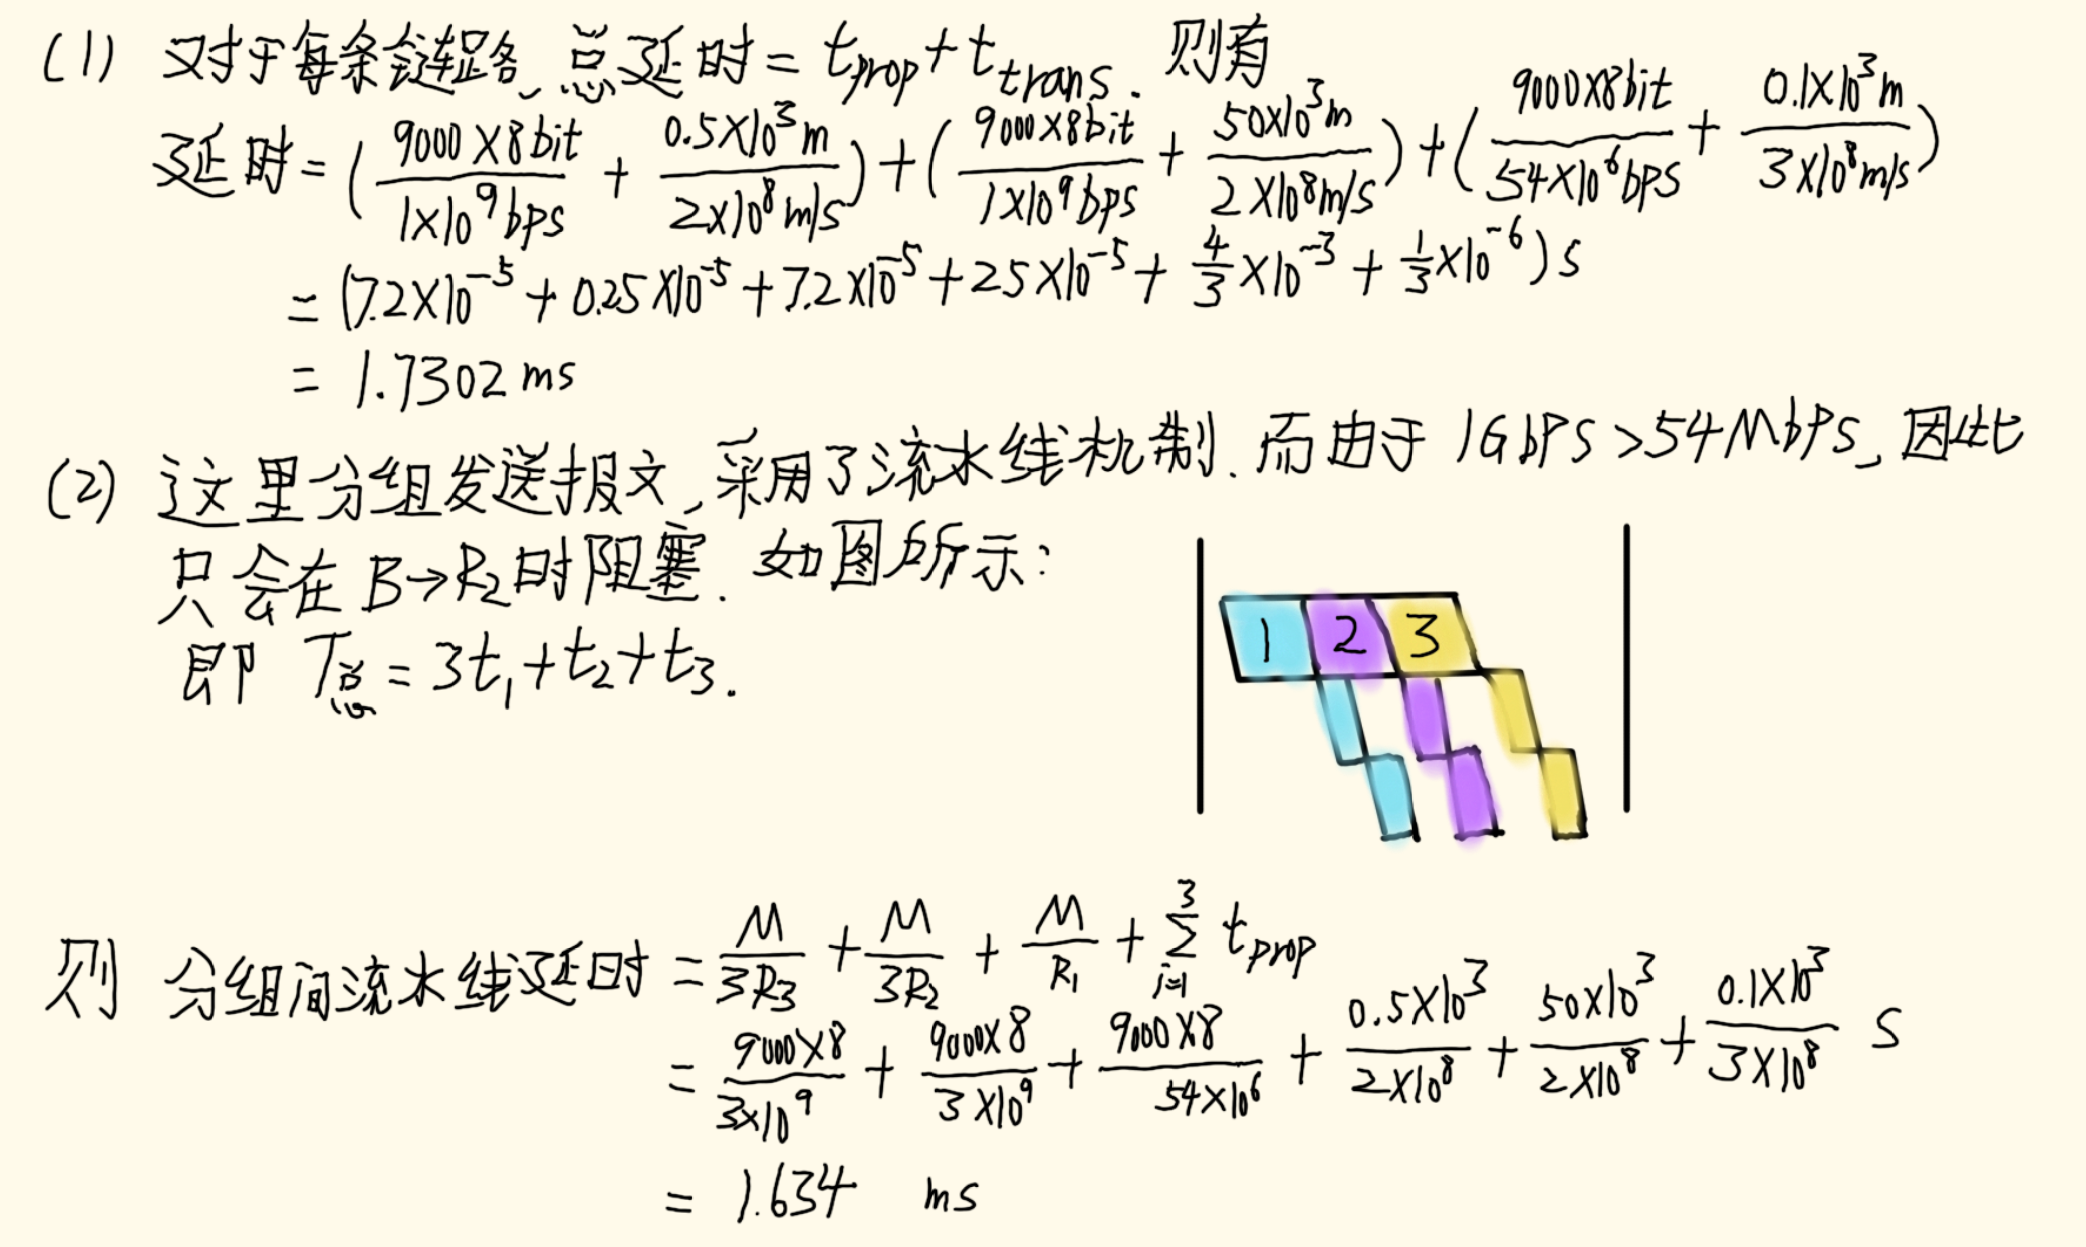 (1) 对于每条链路, 总延时 = t_prop + t_trans. 则有
延时 = (9000×8bit / 1×10^9bps + 0.5×10^3m / 2×10^8m/s) + (9000×8bit / 1×10^9bps + 50×10^3m / 2×10^8m/s) + (9000×8bit / 54×10^6bps + 0.1×10^3m / 3×10^8m/s)
= (7.2×10^-5 + 0.25×10^-5 + 7.2×10^-5 + 25×10^-5 + 4/3×10^-3 + 1/3×10^-6) s
= 1.7302 ms
(2) 这里分组发送报文, 采用了流水线机制. 而由于 1Gbps > 54Mbps, 因此
只会在 B→R2时阻塞. 如图所示:
即 T总 = 3t1 + t2 + t3.
1 2 3
则 分组间流水线延时 = M/3R3 + M/3R2 + M/R1 + Σ(i=1..3) t_prop
= 9000×8 / 3×10^9 + 9000×8 / 3×10^9 + 9000×8 / 54×10^6 + 0.5×10^3 / 2×10^8 + 50×10^3 / 2×10^8 + 0.1×10^3 / 3×10^8 s
= 1.634 ms